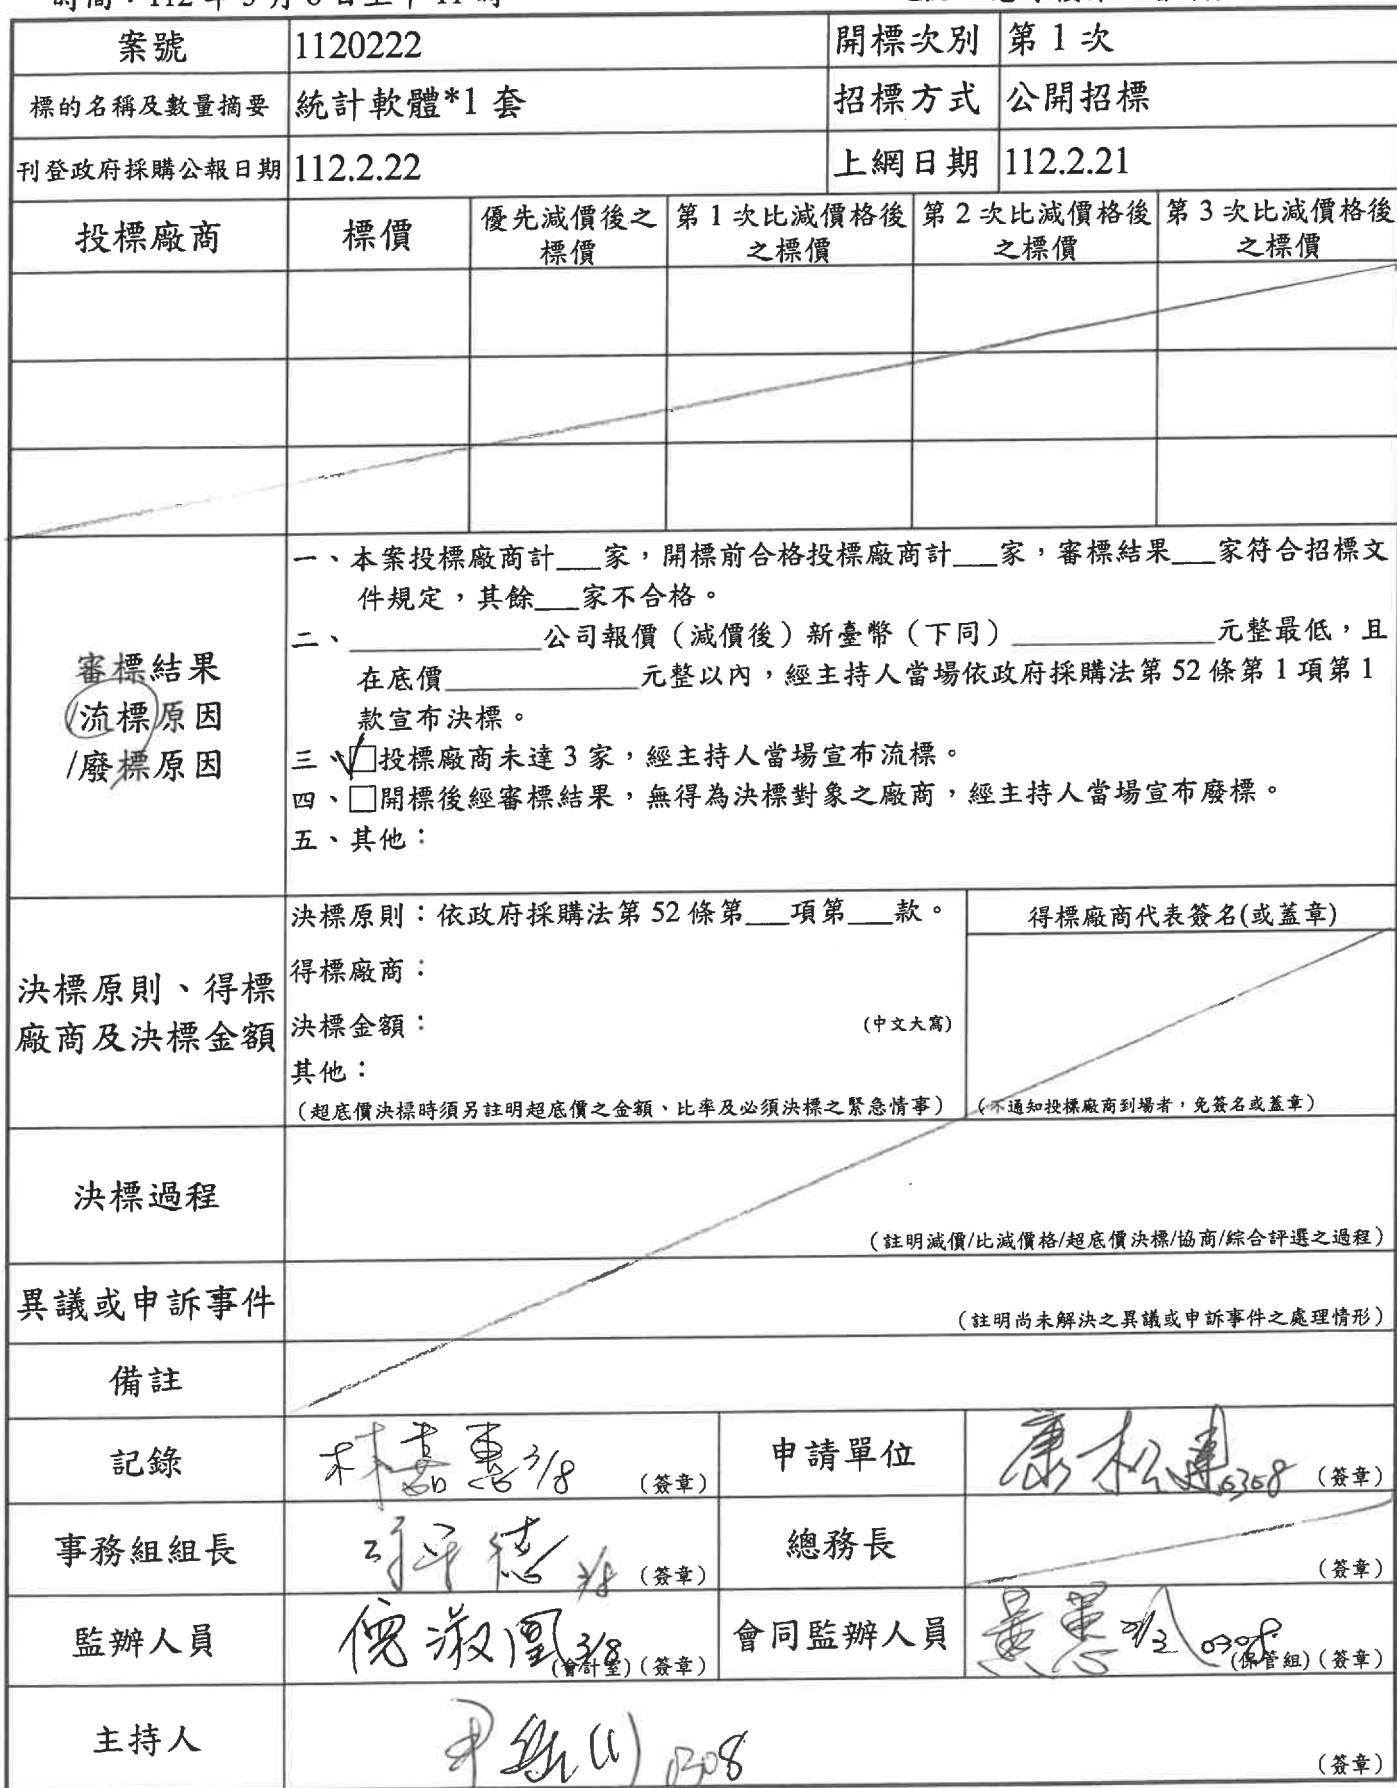 時間：112 年 3 月 8 日上午 11 時
案號 1120222 開標次別 第 1 次
標的名稱及數量摘要 統計軟體*1 套 招標方式 公開招標
刊登政府採購公報日期 112.2.22 上網日期 112.2.21
投標廠商 標價 優先減價後之標價 第 1 次比減價格後之標價 第 2 次比減價格後之標價 第 3 次比減價格後之標價
審標結果
/流標原因
/廢標原因
一、本案投標廠商計___家，開標前合格投標廠商計___家，審標結果___家符合招標文
件規定，其餘___家不合格。
二、____________公司報價（減價後）新臺幣（下同）____________元整最低，且
在底價____________元整以內，經主持人當場依政府採購法第 52 條第 1 項第 1
款宣布決標。
三、☑投標廠商未達 3 家，經主持人當場宣布流標。
四、□開標後經審標結果，無得為決標對象之廠商，經主持人當場宣布廢標。
五、其他：
決標原則、得標
廠商及決標金額
決標原則：依政府採購法第 52 條第___項第___款。
得標廠商：
決標金額： (中文大寫)
其他：
（超底價決標時須另註明超底價之金額、比率及必須決標之緊急情事）
得標廠商代表簽名(或蓋章)
（不通知投標廠商到場者，免簽名或蓋章）
決標過程
（註明減價/比減價格/超底價決標/協商/綜合評選之過程）
異議或申訴事件
（註明尚未解決之異議或申訴事件之處理情形）
備註
記錄 林嘉惠 3/8 （簽章） 申請單位 康松建 0308 （簽章）
事務組組長 3/8 （簽章） 總務長 （簽章）
監辦人員 倪淑凰 3/8 (會計室)（簽章） 會同監辦人員 0308 (保管組)（簽章）
主持人 0308 （簽章）